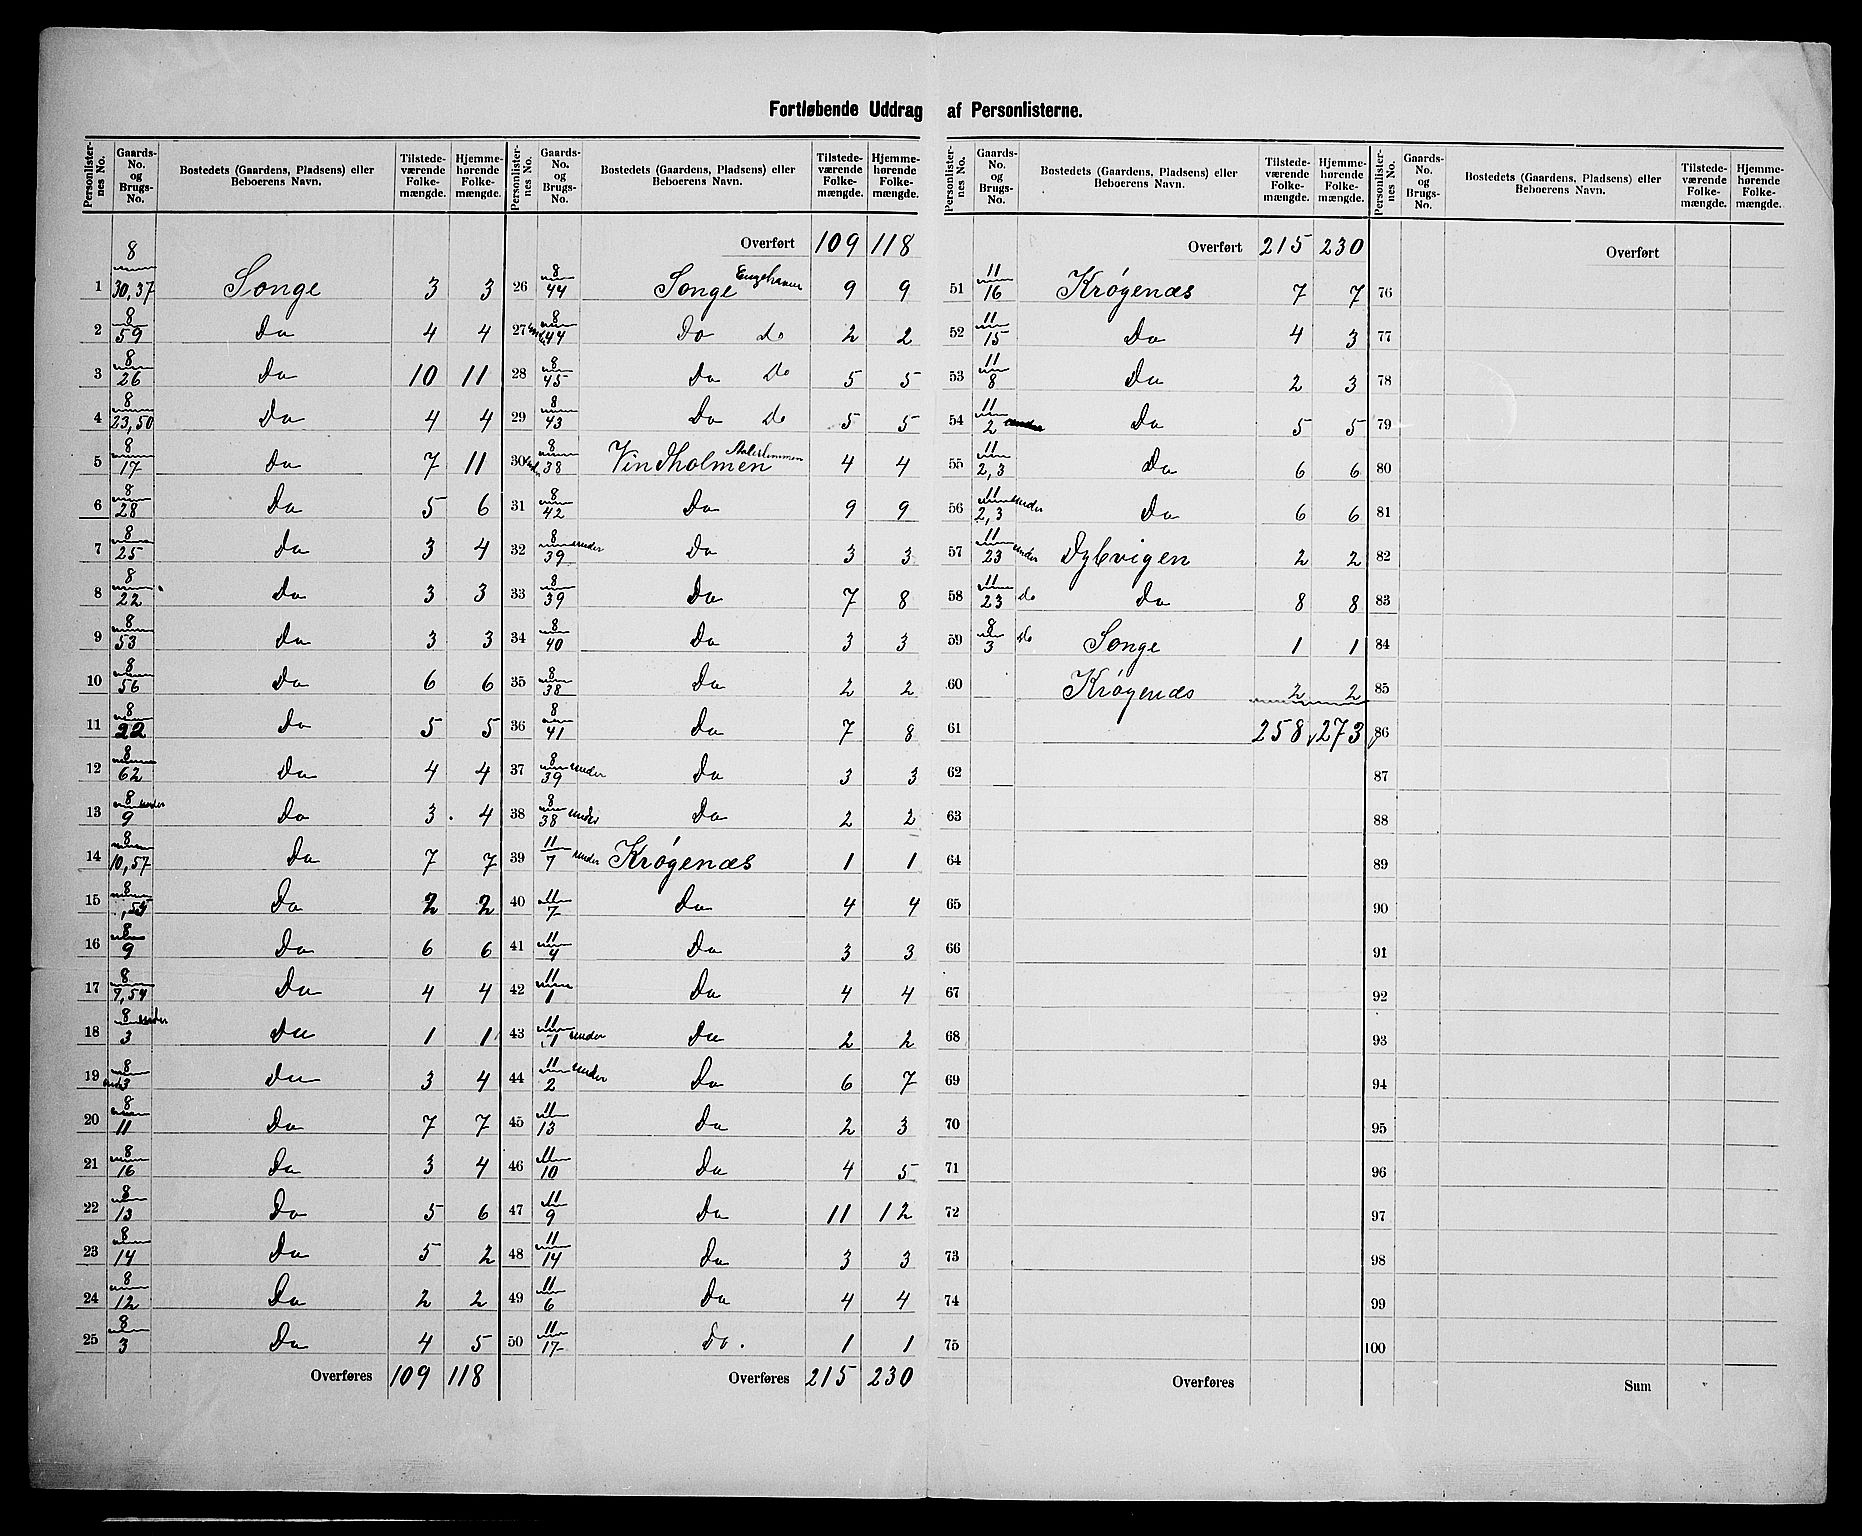 Fortløbende Uddrag af Personlisterne.
Personlister-nes No. | Gaards-No. og Brugs-No. | Bostedets (Gaardens, Pladsens) eller Beboerens Navn. | Tilstede-værende Folke-mængde. | Hjemme-hørende Folke-mængde.
1 | 8/30,37 | Songe | 3 | 3
2 | 8/59 | Do | 4 | 4
3 | 8/26 | Do | 10 | 11
4 | 8/23,50 | Do | 4 | 4
5 | 8/17 | Do | 7 | 11
6 | 8/28 | Do | 5 | 6
7 | 8/25 | Do | 3 | 4
8 | 8/22 | Do | 3 | 3
9 | 8/53 | Do | 3 | 3
10 | 8/56 | Do | 6 | 6
11 | 8/22 | Do | 5 | 5
12 | 8/62 | Do | 4 | 4
13 | 8/9 under | Do | 3 | 4
14 | 8/10,57 | Do | 7 | 7
15 | 8 | Do | 2 | 2
16 | 8/9 | Do | 6 | 6
17 | 8/7,54 | Do | 4 | 4
18 | 8/3 under | Do | 1 | 1
19 | 8/3 | Do | 3 | 4
20 | 8/11 | Do | 7 | 7
21 | 8/16 | Do | 3 | 4
22 | 8/13 | Do | 5 | 6
23 | 8/14 | Do | 5 | 2
24 | 8/12 | Do | 2 | 2
25 | 8/3 | Do | 4 | 5
Overføres | 109 | 118
Personlister-nes No. | Gaards-No. og Brugs-No. | Bostedets (Gaardens, Pladsens) eller Beboerens Navn. | Tilstede-værende Folke-mængde. | Hjemme-hørende Folke-mængde.
Overført | 109 | 118
26 | 8/44 | Songe Engehaven | 9 | 9
27 | 8/44 | Do do | 2 | 2
28 | 8/45 | Do Do | 5 | 5
29 | 8/43 | Do Do | 5 | 5
30 | 8/38 | Vindholmen | 4 | 4
31 | 8/42 | Do | 9 | 9
32 | 8/39 under | Do | 3 | 3
33 | 8/39 | Do | 7 | 8
34 | 8/40 | Do | 3 | 3
35 | 8/38 | Do | 2 | 2
36 | 8/41 | Do | 7 | 8
37 | 8/39 under | Do | 3 | 3
38 | 8/38 under | Do | 2 | 2
39 | 11/7 under | Krøgenæs | 1 | 1
40 | 11/7 | Do | 4 | 4
41 | 11/4 | Do | 3 | 3
42 | 11/1 | Do | 4 | 4
43 | 11/1 under | Do | 2 | 2
44 | 11/2 under | Do | 6 | 7
45 | 11/13 | Do | 2 | 3
46 | 11/10 | Do | 4 | 5
47 | 11/9 | Do | 11 | 12
48 | 11/14 | Do | 3 | 3
49 | 11/6 | Do | 4 | 4
50 | 11/17 | Do. | 1 | 1
Overføres | 215 | 230
Personlister-nes No. | Gaards-No. og Brugs-No. | Bostedets (Gaardens, Pladsens) eller Beboerens Navn. | Tilstede-værende Folke-mængde. | Hjemme-hørende Folke-mængde.
Overført | 215 | 230
51 | 11/16 | Krøgenæs | 7 | 7
52 | 11/15 | Do | 4 | 3
53 | 11/8 | Do | 2 | 3
54 | 11/2 | Do | 5 | 5
55 | 11/2,3 | Do | 6 | 6
56 | 11/2,3 under | Do | 6 | 6
57 | 11/23 under | Dybvigen | 2 | 2
58 | 11/23 do | Do | 8 | 8
59 | 8/3 do | Songe | 1 | 1
60 | Krøgenæs | 2 | 2
61 | 258 | 273
62
63
64
65
66
67
68
69
70
71
72
73
74
75
Overføres
Personlister-nes No. | Gaards-No. og Brugs-No. | Bostedets (Gaardens, Pladsens) eller Beboerens Navn. | Tilstede-værende Folke-mængde. | Hjemme-hørende Folke-mængde.
Overført
76
77
78
79
80
81
82
83
84
85
86
87
88
89
90
91
92
93
94
95
96
97
98
99
100
Sum